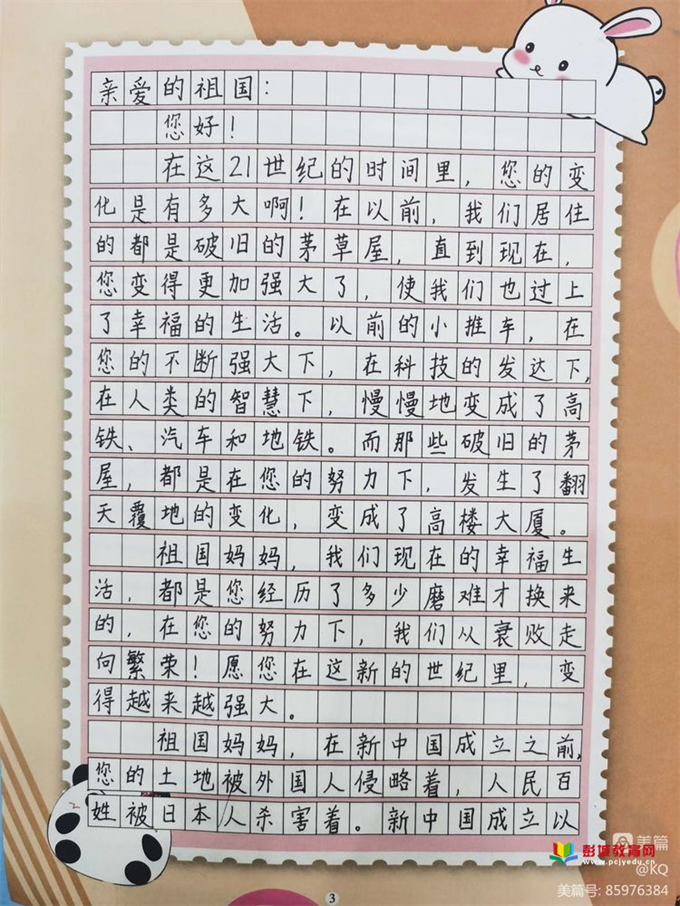 亲爱的祖国：
您好！
在这21世纪的时间里，您的变
化是有多大啊！在以前，我们居住
的都是破旧的茅草屋，直到现在，
您变得更加强大了，使我们也过上
了幸福的生活。以前的小推车，在
您的不断强大下，在科技的发达下，
在人类的智慧下，慢慢地变成了高
铁、汽车和地铁。而那些破旧的茅
屋，都是在您的努力下，发生了翻
天覆地的变化，变成了高楼大厦。
祖国妈妈，我们现在的幸福生
活，都是您经历了多少磨难才换来
的，在您的努力下，我们从衰败走
向繁荣！愿您在这新的世纪里，变
得越来越强大。
祖国妈妈，在新中国成立之前，
您的土地被外国人侵略着，人民百
姓被日本人杀害着。新中国成立以
3
美篇
@KQ
彭埔教育网
www.pcjyedu.cn
美篇号: 85976384